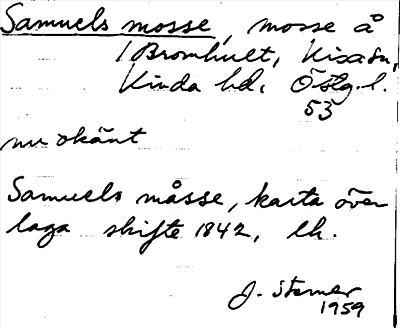 Samuels mosse, mosse å
1 Bromhult, Kisa sn,
Kinda hd. Östg. l.
53
nu okänt
Samuels måsse, karta över
laga skifte 1842, lk.
J. Sterner
1959